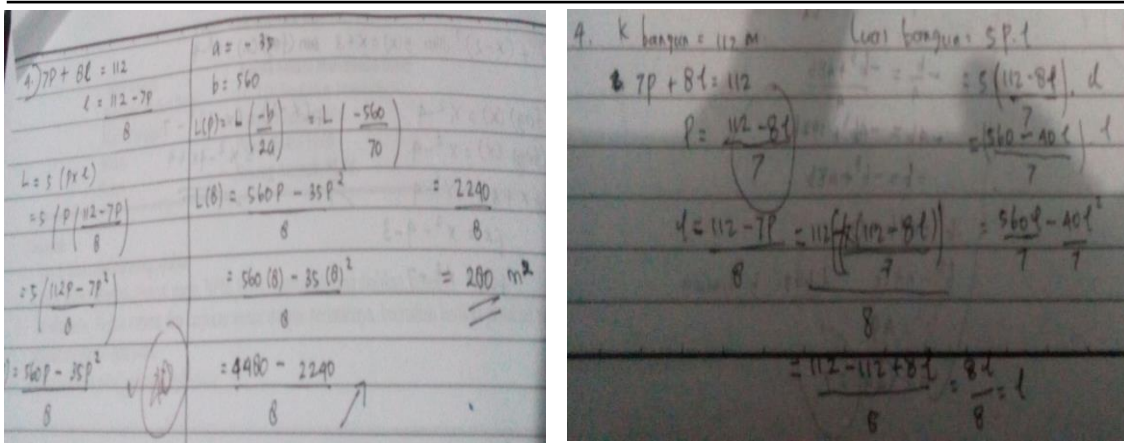 4.) 7P + 8l = 112
l = 112 - 7P / 8
L = 5 (p x l)
= 5 (P (112 - 7P / 8))
= 5 (112P - 7P² / 8)
= 560P - 35P² / 8
a = -35
b = 560
L(P) = L (-b / 2a) = L (-560 / 70)
L(8) = 560P - 35P² / 8
= 560(8) - 35(8)² / 8
= 4480 - 2240 / 8
= 2240 / 8
= 280 m²
4. K bangun = 112 m
7p + 8l = 112
P = 112 - 8l / 7
l = 112 - 7P / 8
= 112 - 112 + 8l / 8 = 8l / 8 = l
Luas bangun = 5 p. l
= 5 (112 - 8l / 7) . l
= (560 - 40l / 7) . l
= 560l / 7 - 40l² / 7